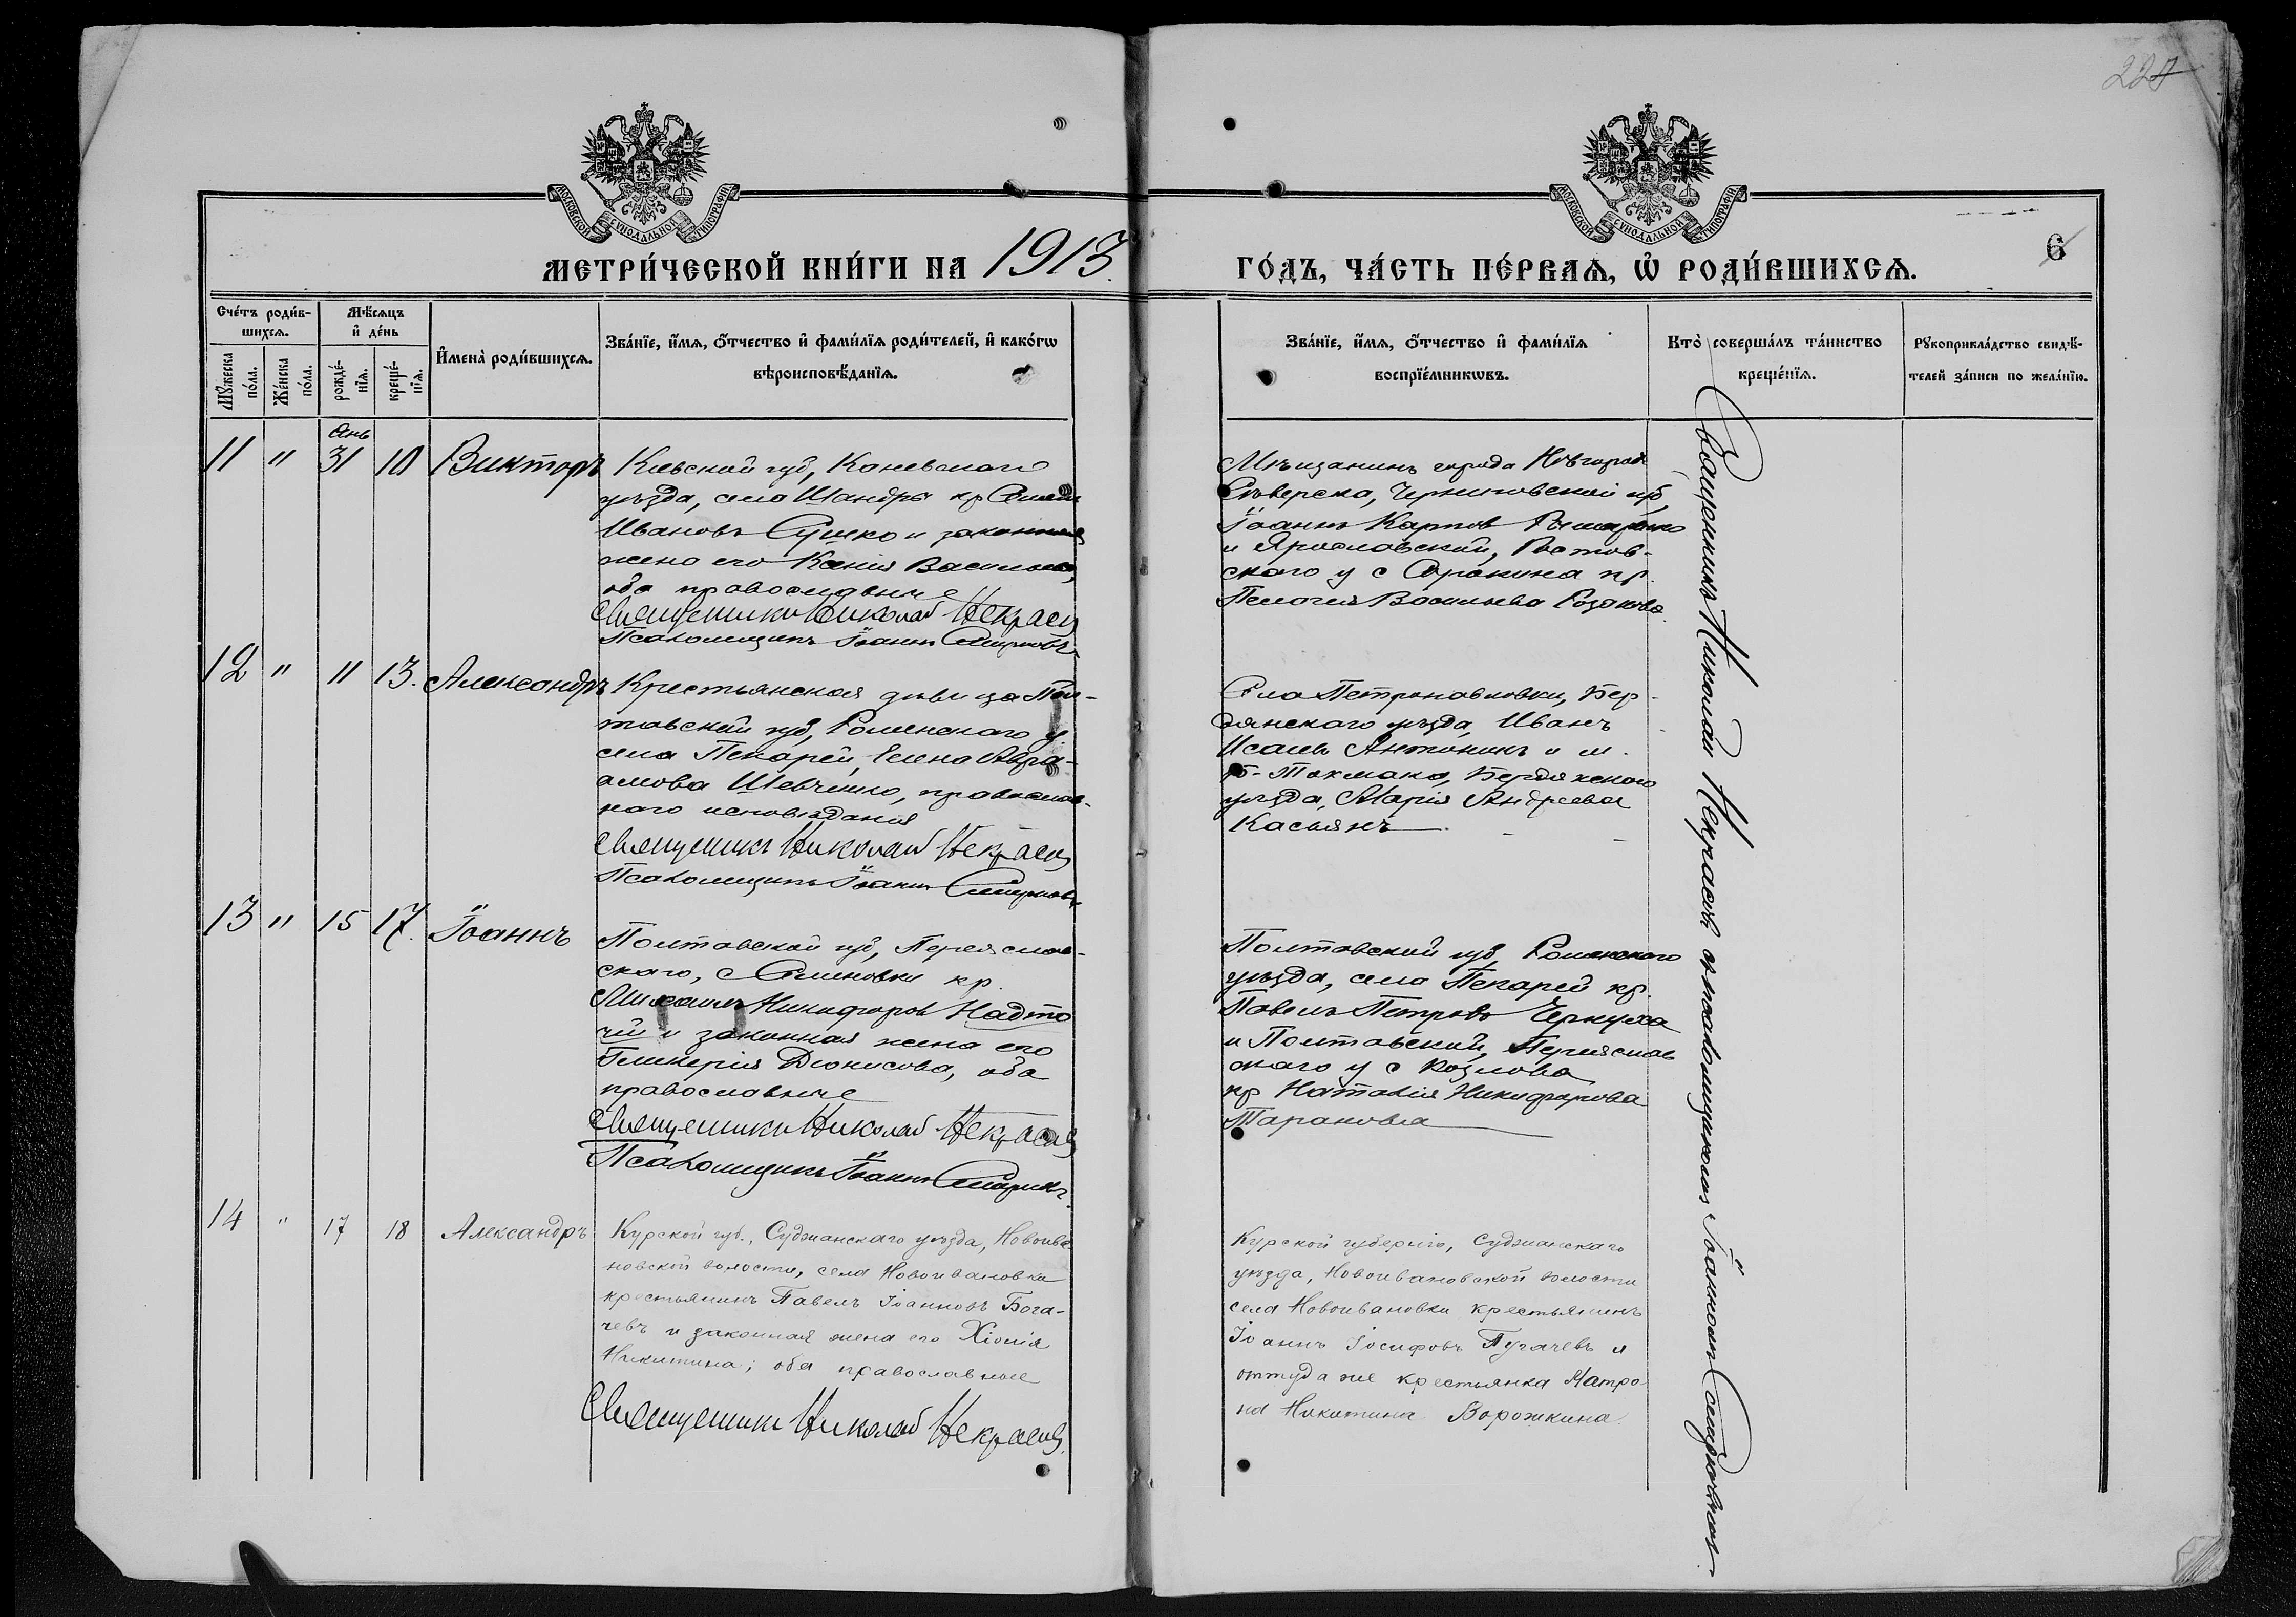 227
МОСКОВСКОЙ СУНОДАЛЬНОЙ ТИПОГРАФІИ
МОСКОВСКОЙ СУНОДАЛЬНОЙ ТИПОГРАФІИ
6
МЕТРИ́ЧЕСКОЙ КНИ́ГИ НА 1913
ГО́ДЪ, ЧА́СТЬ ПЕ́РВАѦ, Ѡ҆ РОДИ́ВШИХСѦ.
Сче́тъ роди́в-
шихсѧ.
Мꙋ́жеска
по́ла.
Же́нска
по́ла.
Мѣ́сѧцъ
и҆ де́нь
рожде́-
нїѧ.
креще́-
нїѧ.
И҆мена̀ роди́вшихсѧ.
Зва́нїе, и҆́мѧ, ѻ҆́тчество и҆ фами́лїѧ роди́телей, и҆ како́гѡ
вѣроисповѣ́данїѧ.
Зва́нїе, и҆́мѧ, ѻ҆́тчество и҆ фами́лїѧ
воспрїе́мникѡвъ.
Кто̀ соверша́лъ та́инство
креще́нїѧ.
Рꙋкоприкла́дство свидѣ́-
телей за́писи по жела́нїю.
11 " Янв 31 10 Викторъ
Кіевской губ, Каневскаго
уѣзда, села Шандра кр
Ивановъ Сушко и законная
жена его Ксенія Васильева,
оба православные
Священникъ Николай Некрасов
Псаломщикъ Іоаннъ
Мѣщанинъ города Новгород
Сѣверска, Черниговской губ,
Іоаннъ Карпов
и Ярославской, Ростов-
скаго у с Сорокина кр.
Пелагея Васильева
12 " 11 13. Александръ
Крестьянская дѣвица Пол-
тавской губ, Роменскаго у
села Пекарей, Елена Авра-
амова Шевченко, православ-
наго исповѣданія
Священникъ Николай Некрасов
Псаломщикъ Іоаннъ
Села Петропавловки, Бер-
дянскаго уѣзда, Иванъ
Исаевъ Антоникъ и м.
Б-Токмака, Бердянскаго
уѣзда, Марія Андреева
Касьянъ
13 " 15 17. Іоаннъ
Полтавской губ, Переяслав-
скаго, с Семеновки кр.
Михаилъ Никифоров Надто
чій и законная жена его
Гликерія Діонисова, оба
православные
Священникъ Николай Некрасов
Псаломщикъ Іоаннъ
Полтавской губ, Роменского
уѣзда, села Пекарей кр.
Павелъ Петровъ Черкуха
и Полтавской, Переяслав
скаго у с Козлова
кр Наталія Никифорова
Таранова
14 " 17 18 Александръ
Курской губ., Суджанскаго уѣзда, Новоива-
новской волости, села Новоивановки
крестьянинъ Павелъ Іоанновъ Бога-
чевъ и законная жена его Хіонія
Никитина; оба православные
Священникъ Николай Некрасов.
Курской губерніи, Суджанскаго
уѣзда, Новоивановской волости
села Новоивановки крестьянинъ
Іоаннъ Іосифовъ Пугачевъ и
оттуда же крестьянка Матро-
на Никитина Ворожкина.
Священникъ Николай Некрасовъ съ псаломщикомъ Іоанномъ